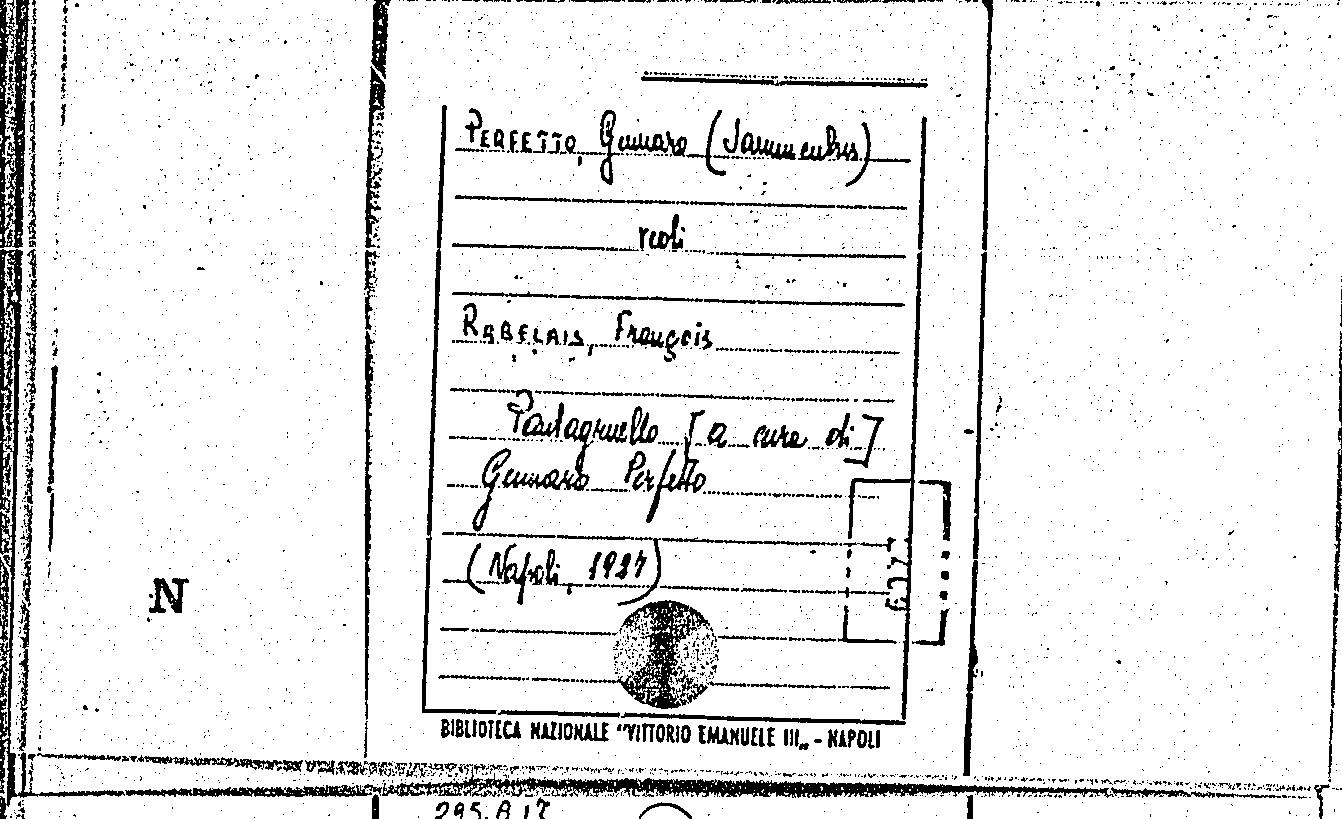 PERFETTO, Gennaro (Jannuculus)
vedi
RABELAIS, François
Pantagruello [a cura di]
Gennaro Perfetto
(Napoli, 1927)
N
BIBLIOTECA NAZIONALE "VITTORIO EMANUELE III„ - NAPOLI
295.A 17